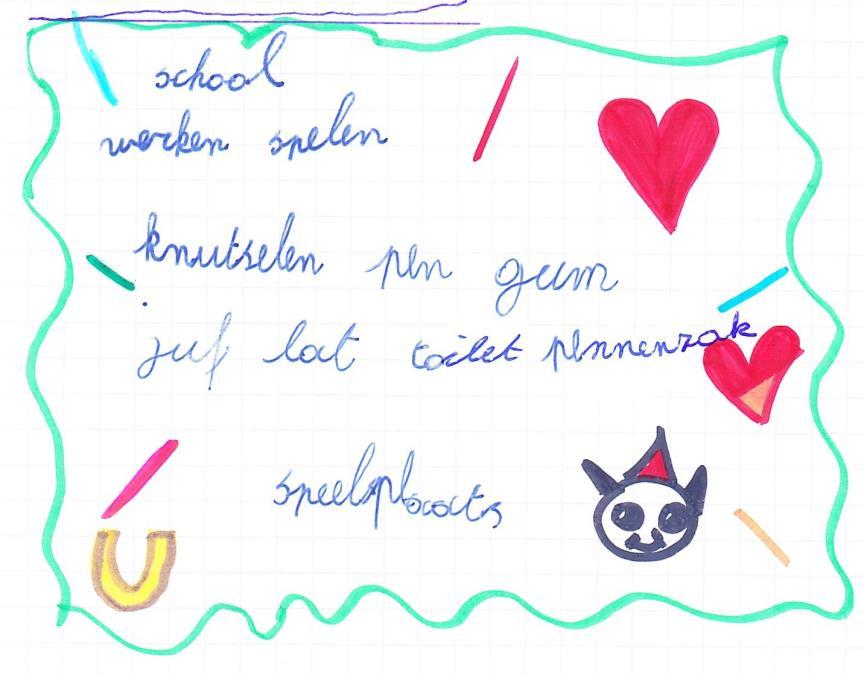 school
werken spelen
knutselen pen gum
juf lat toilet pennenzak
speelplaats